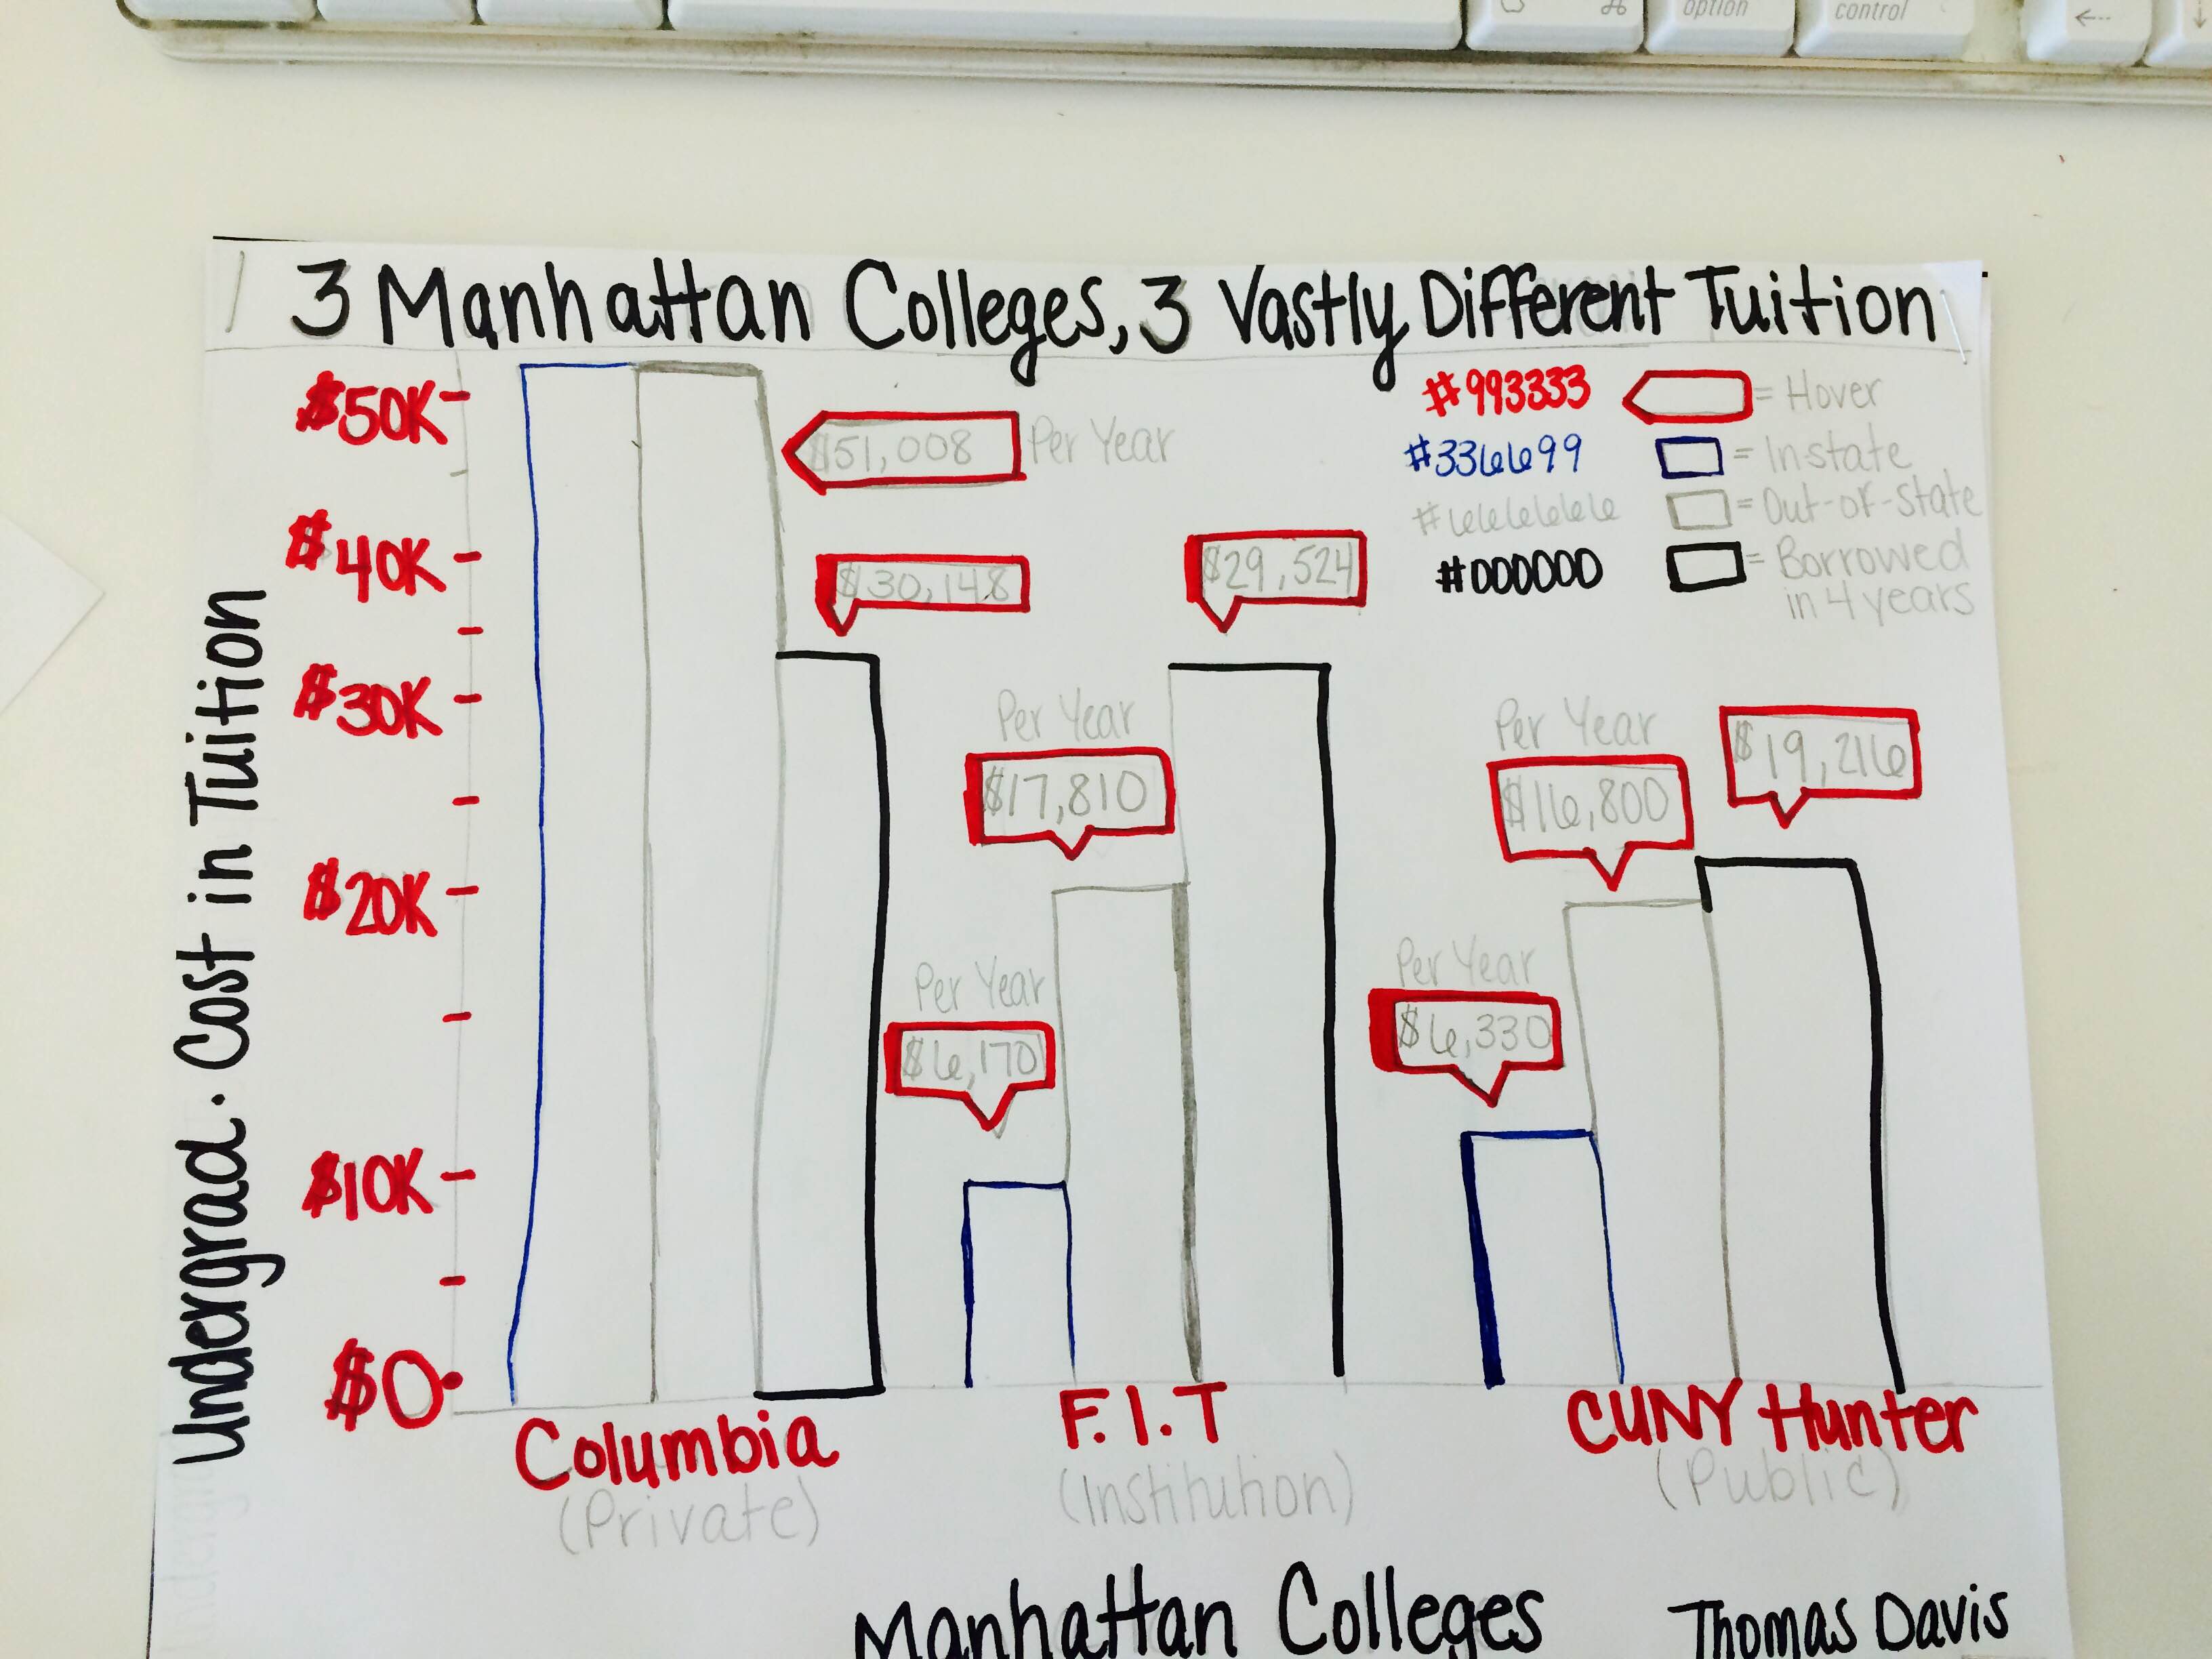 option
control
3 Manhattan Colleges, 3 Vastly Different Tuition
#993333 = Hover
#336699 = In-state
#666666 = Out-of-state
#000000 = Borrowed
in 4 years
Undergrad. Cost in Tuition
$50K
$40K
$30K
$20K
$10K
$0
$51,008 Per Year
$30,148
Per Year
$6,170
Per Year
$17,810
$29,524
Per Year
$6,330
Per Year
$16,800
$19,216
Columbia
(Private)
F.I.T
(Institution)
CUNY Hunter
(Public)
Manhattan Colleges
Thomas Davis